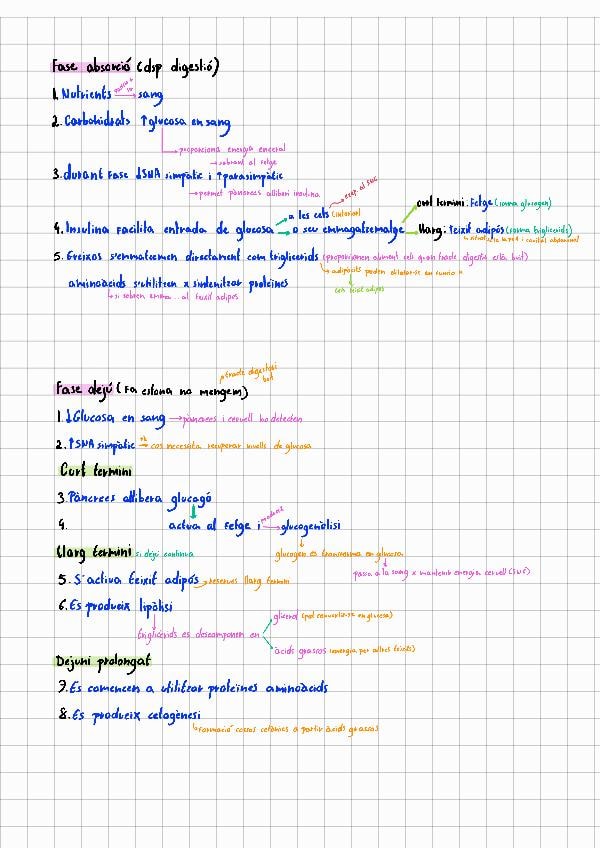 Fase absorció (dsp digestió)
1. Nutrients → sang
2. Carbohidrats ↑glucosa en sang
→ proporciona energia encèfal
→ sobrant al fetge
3. durant fase ↓SNA simpàtic i ↑parasimpàtic
→ permet pàncrees alliberi insulina
4. Insulina facilita entrada de glucosa → a les cèls (interior)
→ a seu emmagatzematge → curt termini: Fetge (forma glucogen)
→ llarg: teixit adipós (forma triglicèrids)
5. Greixos s'emmatzemen directament com triglicèrids (proporcionen aliment cèls quan tracte digestiu està buit)
→ adipòcits poden dilatar-se en funció
→ com teixit adipós
aminoàcids s'utilitzen x sintetitzar proteïnes
→ si sobren emma... al teixit adipós
Fase dejú (fa estona no mengem)
→ tracte digestiu buit
1. ↓Glucosa en sang → pàncrees i cervell ho detecten
2. ↑SNA simpàtic → cos necessita recuperar nivells de glucosa
Curt termini
3. Pàncrees allibera glucagó
4. actua al fetge i → produeix glucogenòlisi
→ glucogen es transforma en glucosa
→ passa a la sang x mantenir energia cervell (SNC)
Llarg termini si dejú continua
5. S'activa teixit adipós → reserves llarg termini
6. Es produeix lipòlisi
triglicèrids es descomponen en → glicerol (pot convertir-se en glucosa)
→ àcids grassos (energia per altres teixits)
Dejuni prolongat
7. Es comencen a utilitzar proteïnes aminoàcids
8. Es produeix cetogènesi
→ formació cossos cetònics a partir àcids grassos